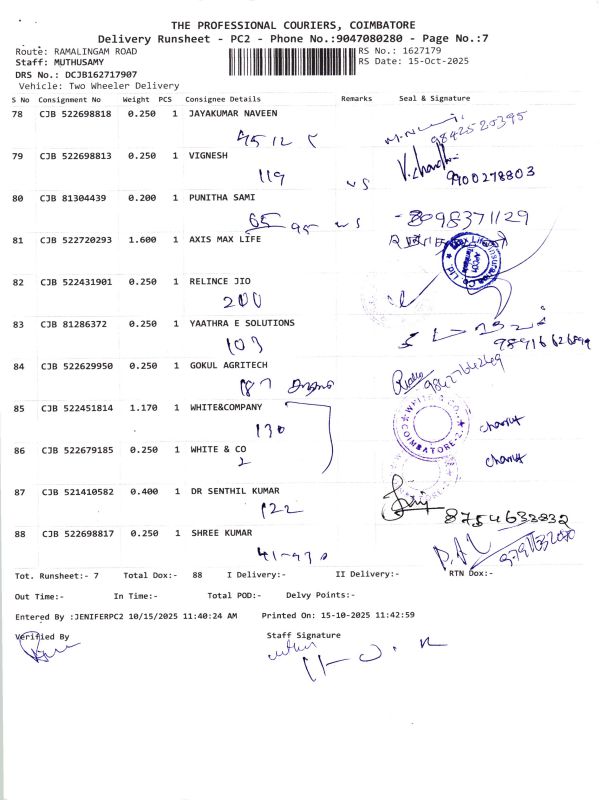 THE PROFESSIONAL COURIERS, COIMBATORE
Delivery Runsheet - PC2 - Phone No.:9047080280 - Page No.:7
Route: RAMALINGAM ROAD RS No.: 1627179
Staff: MUTHUSAMY RS Date: 15-Oct-2025
DRS No.: DCJB162717907
Vehicle: Two Wheeler Delivery
S No Consignment No Weight PCS Consignee Details Remarks Seal & Signature
78 CJB 522698818 0.250 1 JAYAKUMAR NAVEEN
9842520395
79 CJB 522698813 0.250 1 VIGNESH
119 9900278803
80 CJB 81304439 0.200 1 PUNITHA SAMI
65 95 8098371129
81 CJB 522720293 1.600 1 AXIS MAX LIFE
82 CJB 522431901 0.250 1 RELINCE JIO
200
83 CJB 81286372 0.250 1 YAATHRA E SOLUTIONS
103
84 CJB 522629950 0.250 1 GOKUL AGRITECH
187
85 CJB 522451814 1.170 1 WHITE&COMPANY
WHITE & CO. COIMBATORE-2
130
86 CJB 522679185 0.250 1 WHITE & CO
2
87 CJB 521410582 0.400 1 DR SENTHIL KUMAR
122 8754633832
88 CJB 522698817 0.250 1 SHREE KUMAR
Tot. Runsheet:- 7 Total Dox:- 88 I Delivery:- II Delivery:- RTN Dox:-
Out Time:- In Time:- Total POD:- Delvy Points:-
Entered By :JENIFERPC2 10/15/2025 11:40:24 AM Printed On: 15-10-2025 11:42:59
Verified By Staff Signature